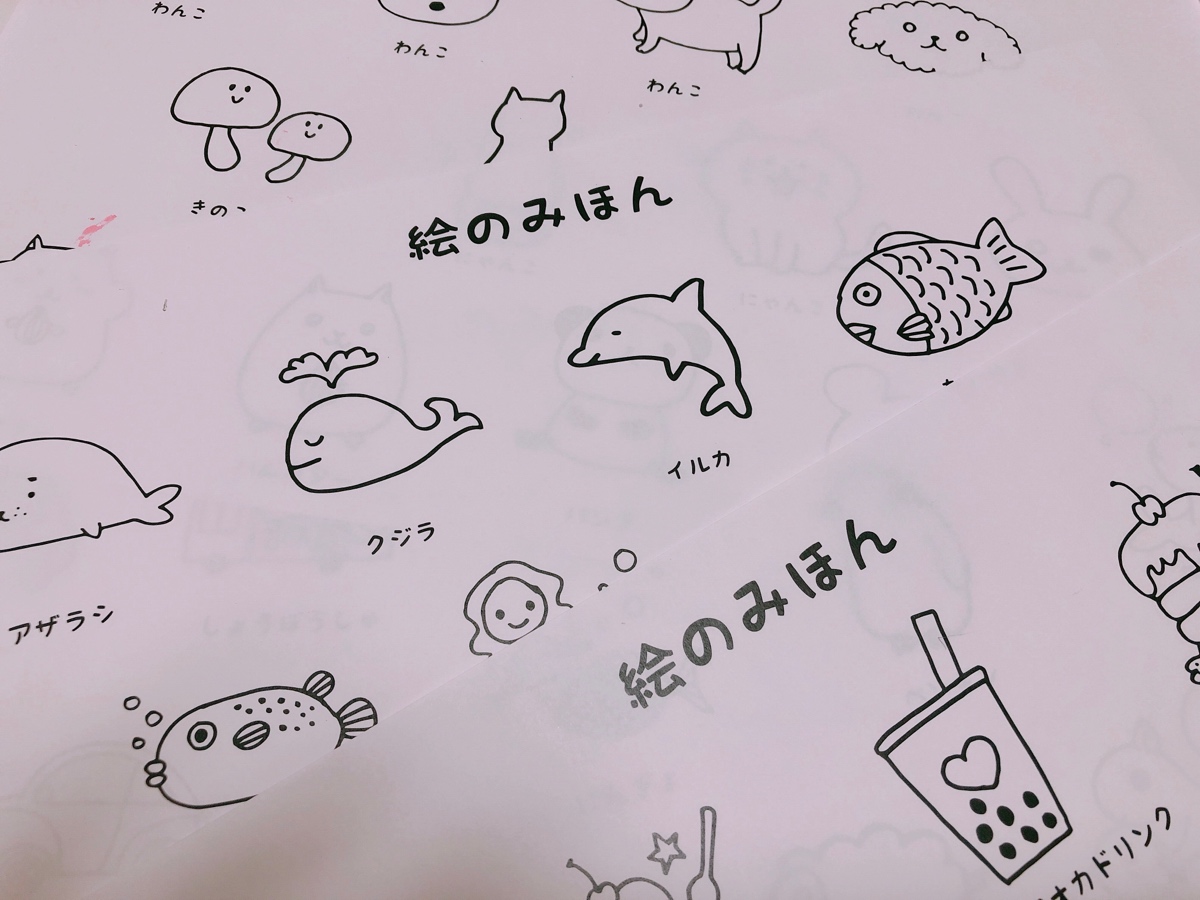 わんこ
わんこ
わんこ
きのこ
絵のみほん
イルカ
クジラ
アザラシ
絵のみほん
オカドリンク